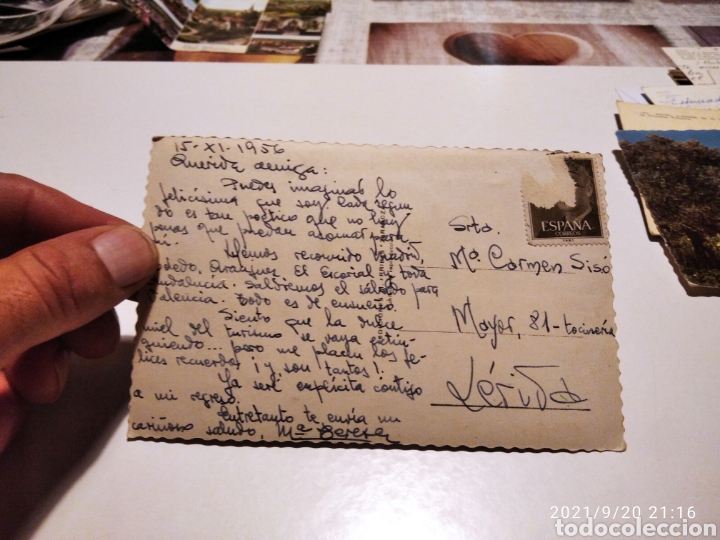 15-XI-1956
Querida amiga:
Puedes imaginar lo
felicísima que soy. Cada segun
do es tan poético que no hay
penas que puedan asomar para
mí.
Hemos recorrido Madrid,
Toledo, Aranjuez, El Escorial y toda
Andalucía. Saldremos el sábado para
Valencia. Todo es de ensueño.
Siento que la dulce
miel del turismo se vaya extin-
guiendo... pero me placen los fe-
lices recuerdos ¡y son tantos!.
Ya seré explícita contigo
a mi regreso.
Entretanto te envía un
cariñoso saludo, Mª Teresa
ESPAÑA
CORREOS
Srta.
Mª. Carmen Sisó
Mayor, 81-tocinería
Lérida
2021/9/20 21:16
todocoleccion.net